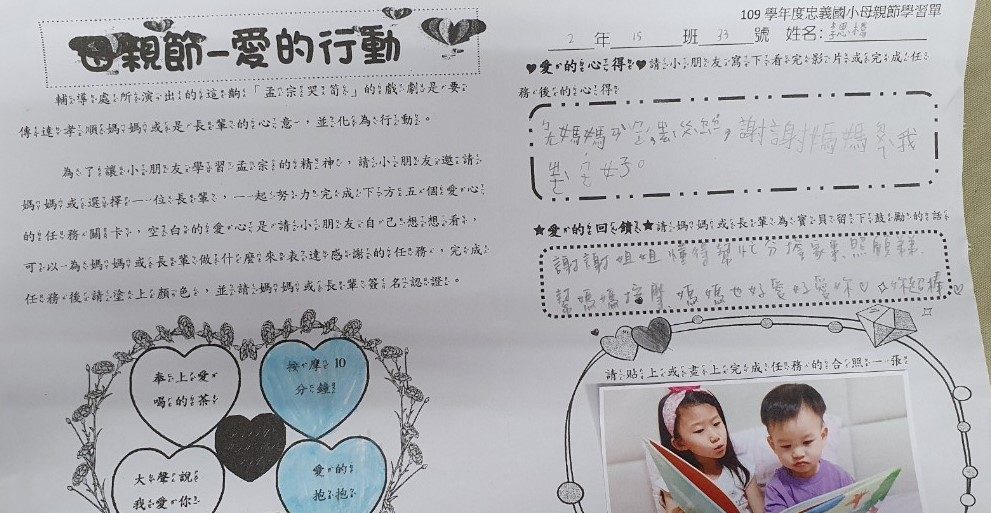 母親節-愛的行動
輔導處所演出的這齣「孟宗哭筍」的戲劇是要
傳達孝順媽媽或是長輩的心意，並化為行動。
為了讓小朋友學習孟宗的精神，請小朋友邀請
媽媽或選擇一位長輩，一起努力完成下方五個愛心
的任務關卡，空白的愛心是請小朋友自己想想看，
可以為媽媽或長輩做什麼來表達感謝的任務，完成
任務後請塗上顏色，並請媽媽或長輩簽名認證。
奉上愛
喝的茶
按摩10
分鐘
大聲說
我愛你
愛的
抱抱
109學年度忠義國小母親節學習單
2年15班33號 姓名:
♥愛的心得♥請小朋友寫下看完影片或完成任
務後的心得
謝謝媽媽
我
★愛的回饋★請媽媽或長輩為寶貝留下鼓勵的話
謝謝姐姐懂得幫忙分擔家事照顧
幫媽媽按摩 媽媽也好愛好愛你
請貼上或畫上完成任務的合照一張